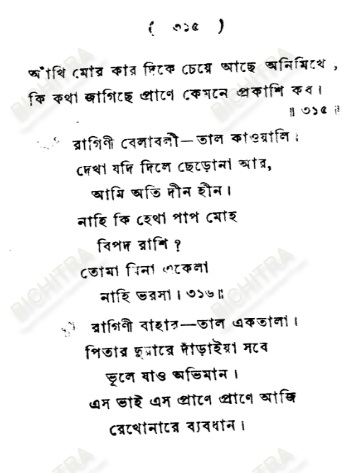 ( ৩১৫ )
আঁখি মোর কার দিকে চেয়ে আছে অনিমিখে,
কি কথা জাগিছে প্রাণে কেমনে প্রকাশি কব।
॥ ৩১৫ ॥
রাগিণী বেলাবলী—তাল কাওয়ালি।
দেখা যদি দিলে ছেড়োনা আর,
আমি অতি দীন হীন।
নাহি কি হেথা পাপ মোহ
বিপদ রাশি ?
তোমা বিনা একেলা
নাহি ভরসা। ৩১৬॥
রাগিণী বাহার—তাল একতালা।
পিতার দুয়ারে দাঁড়াইয়া সবে
ভুলে যাও অভিমান।
এস ভাই এস প্রাণে প্রাণে আজি
রেখোনারে ব্যবধান।
BICHITRA